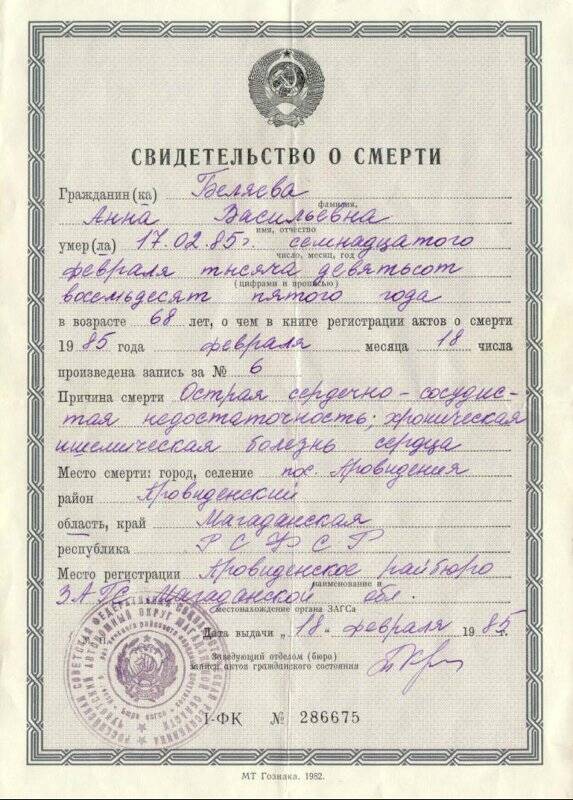 СВИДЕТЕЛЬСТВО О СМЕРТИ
Гражданин (ка) Беляева
фамилия,
Анна Васильевна
имя, отчество
умер(ла) 17.02.85г. семнадцатого
число, месяц, год
февраля тысяча девятьсот
(цифрами и прописью)
восемьдесят пятого года
в возрасте 68 лет, о чем в книге регистрации актов о смерти
19 85 года февраля месяца 18 числа
произведена запись за № 6
Причина смерти Острая сердечно-сосудис-
тая недостаточность; хроническая
ишемическая болезнь сердца
Место смерти: город, селение пос. Провидения
район Провиденский
область, край Магаданская
республика РСФСР
Место регистрации Провиденское райбюро
наименование и
ЗАГС Магаданской обл.
местонахождение органа ЗАГСа
Дата выдачи „ 18 " февраля 19 85 г.
Заведующий отделом (бюро)
записи актов гражданского состояния
I-ФК № 286675
МТ Гознака. 1982.